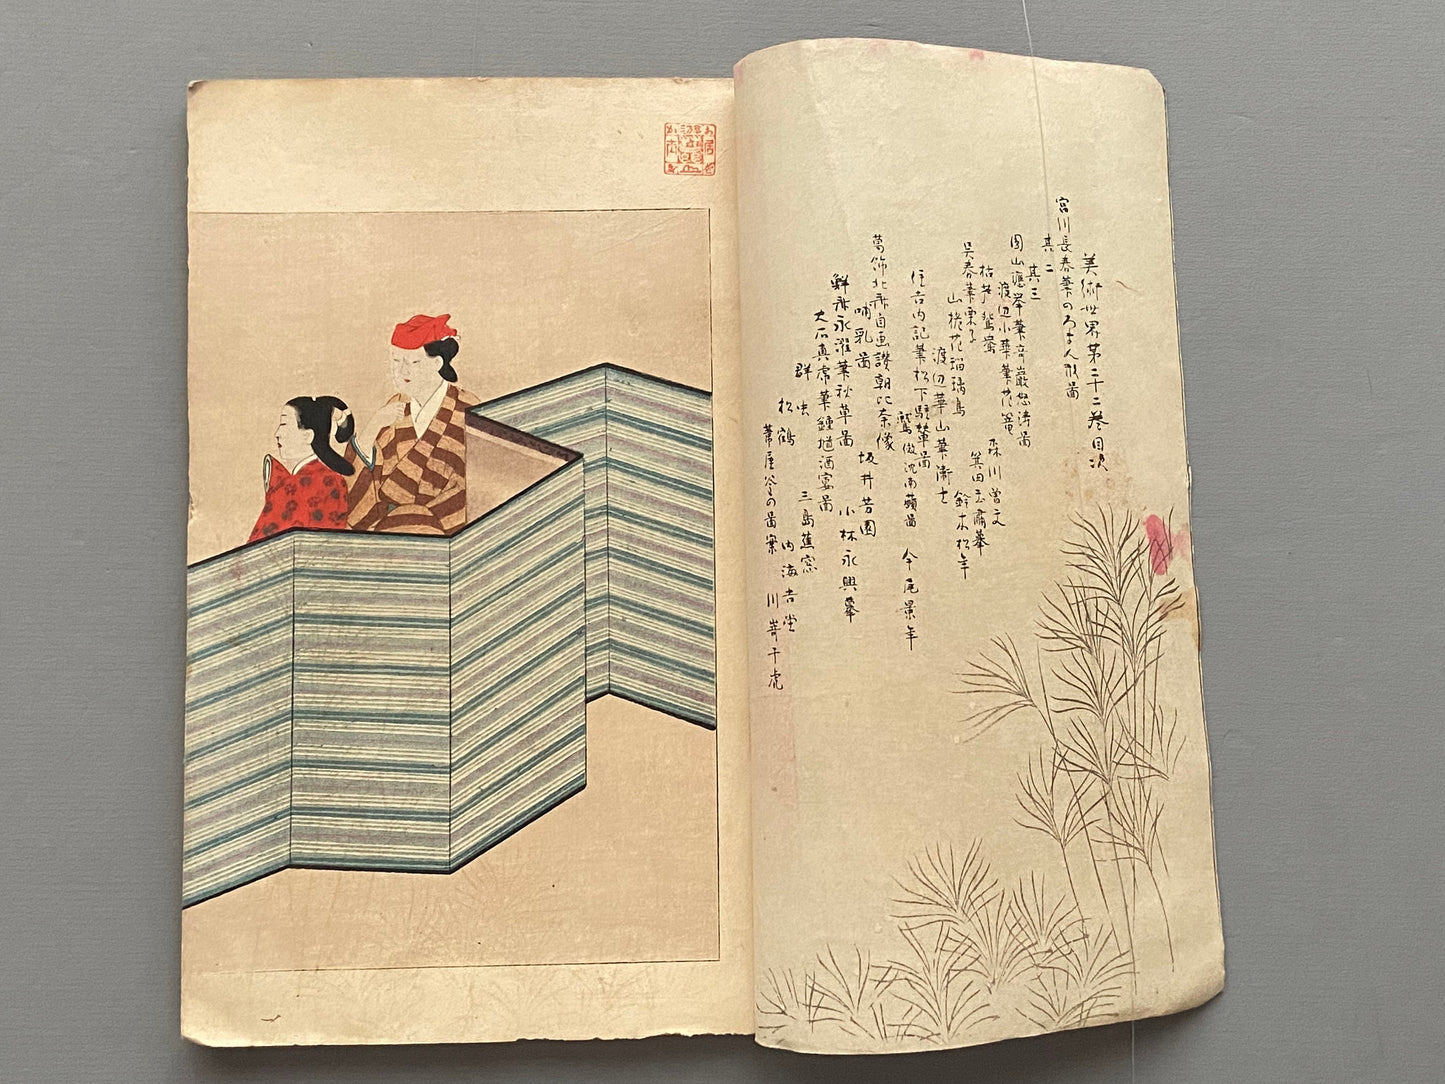 美術世界第二十二巻目次
宮川長春筆のろま人形図
其二
其三
圓山應挙筆奇巌怒涛図 森川曽文
渡辺小華筆花篭 箕田玉肅摹
枯芦鴛鴦 鈴木松年
呉春筆栗子
山桃花瑠璃鳥
渡辺華山筆衛士
住吉内記筆松下駐輦図
鷲 倣沈南蘋図 今尾景年
葛飾北斎自画讃朝比奈像
哺乳図 坂井芳園
鮮斎永濯筆秋草図 小林永興摹
大石真虎筆鍾馗酒宴図
群虫 三島蕉窓
松鶴 内海吉堂
葦屋釜の図案 川嵜千虎